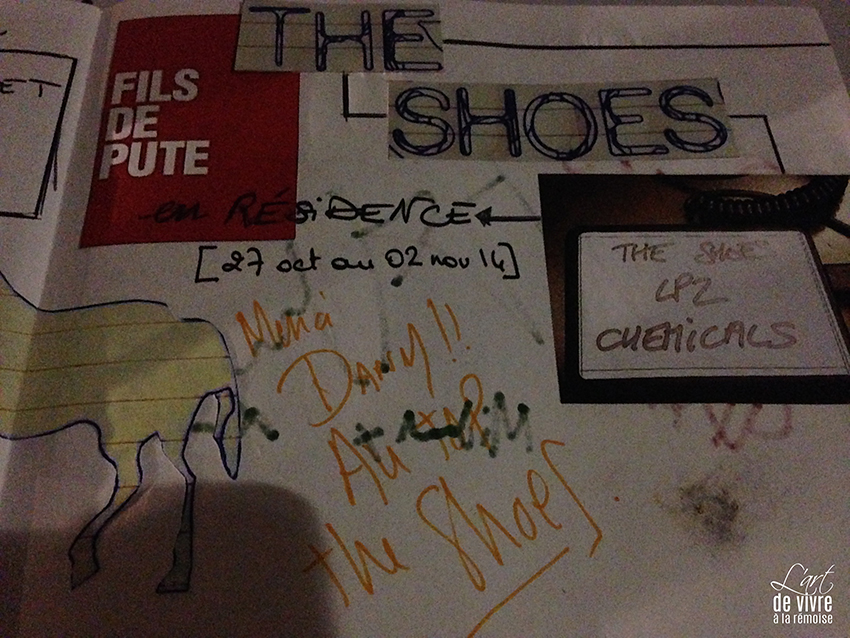 THE
SHOES
FILS
DE
PUTE
ET
en RÉSIDENCE
[27 oct au 02 nov 14]
THE SHOE
LP2
CHEMICALS
Merci
DANNY!!
Au top
the Shoes
L'art
de vivre
à la rémoise